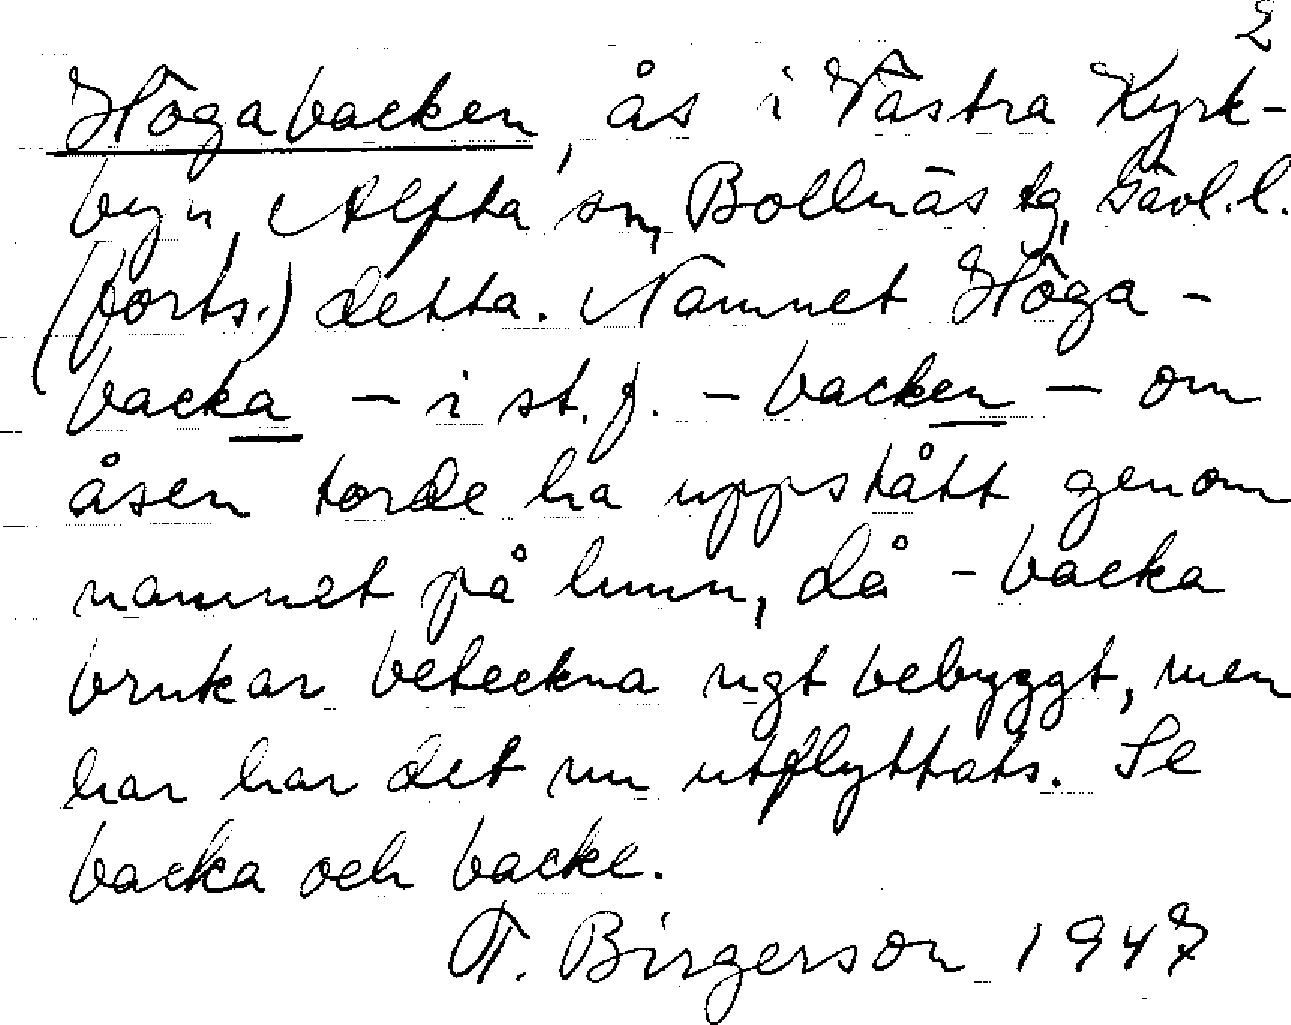 2
Högabacken, ås i Västra Kyrk-
byn, Alfta sn, Bollnäs tg, Gävl.l.
(forts.) detta. Namnet Höga-
backa - i st.f. - backen - om
åsen torde ha uppstått genom
namnet på lmn, då - backa
brukar beteckna ngt bebyggt, men
här har det nu utflyttats. Se
backa och backe.
F. Birgerson 1947